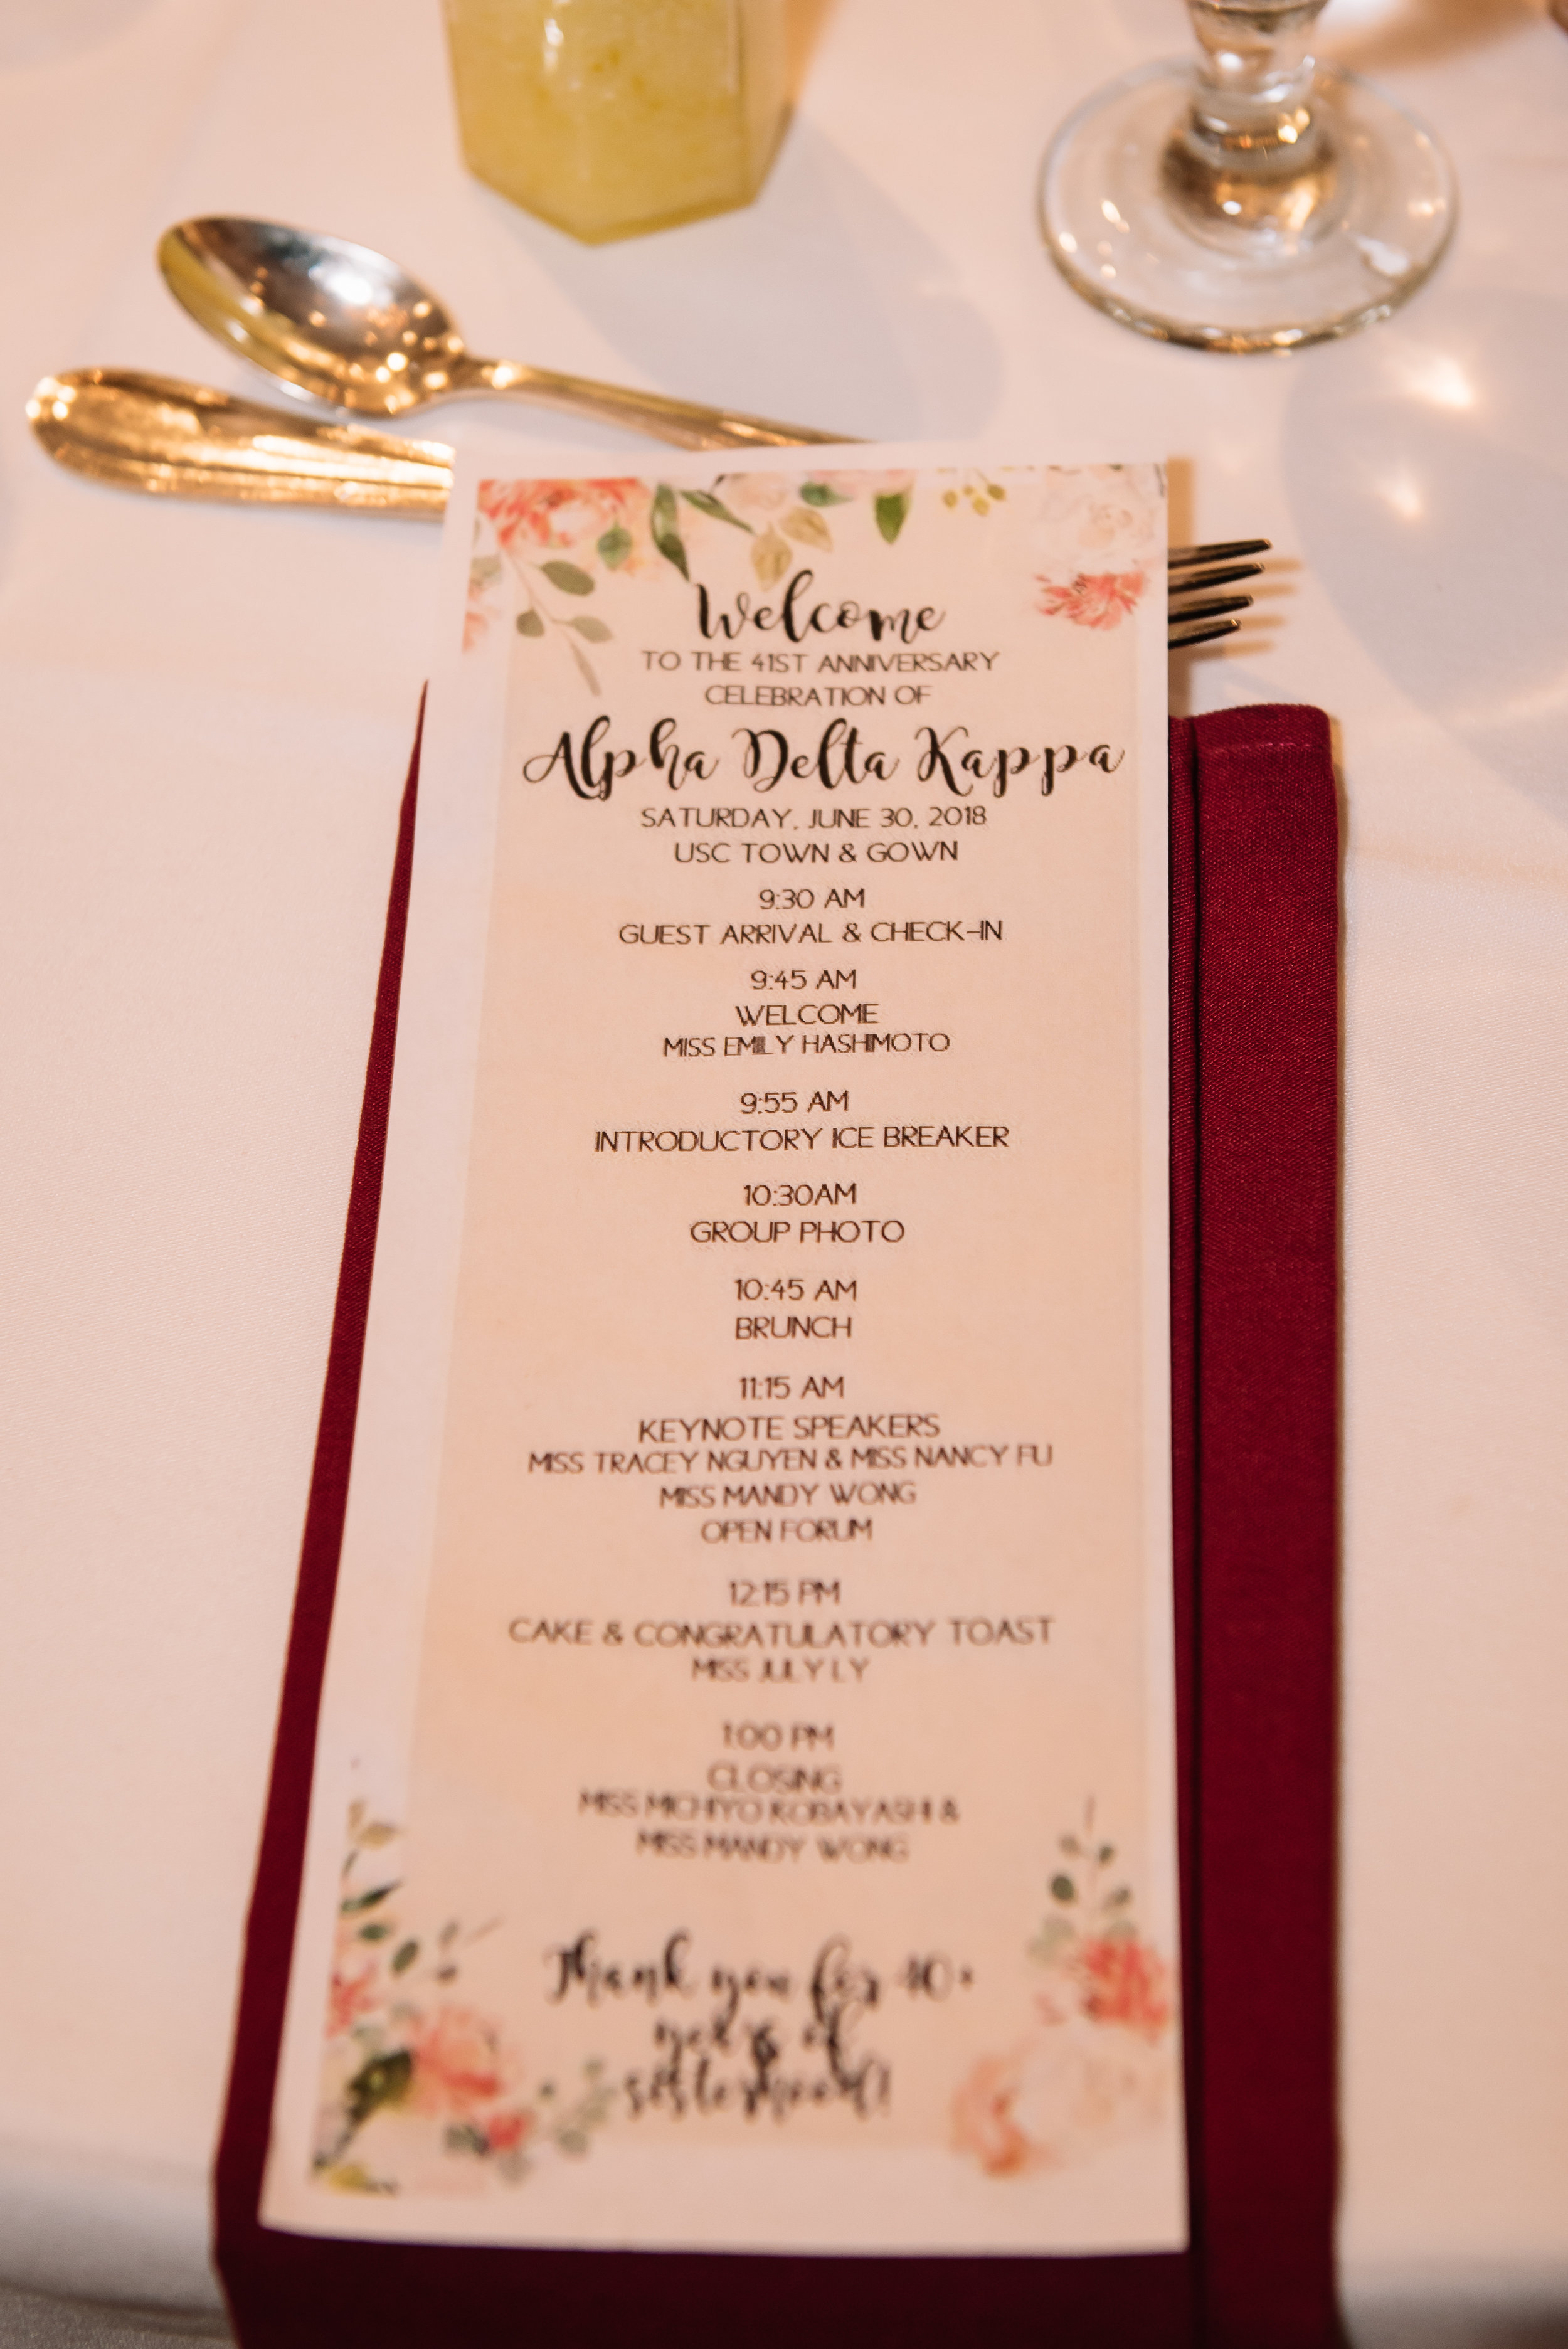 Welcome
TO THE 41ST ANNIVERSARY
CELEBRATION OF
Alpha Delta Kappa
SATURDAY, JUNE 30, 2018
USC TOWN & GOWN
9:30 AM
GUEST ARRIVAL & CHECK-IN
9:45 AM
WELCOME
MISS EMILY HASHIMOTO
9:55 AM
INTRODUCTORY ICE BREAKER
10:30AM
GROUP PHOTO
10:45 AM
BRUNCH
11:15 AM
KEYNOTE SPEAKERS
MISS TRACEY NGUYEN & MISS NANCY FU
MISS MANDY WONG
OPEN FORUM
12:15 PM
CAKE & CONGRATULATORY TOAST
MISS JULY LY
1:00 PM
CLOSING
MISS MICHIYO KOBAYASHI &
MISS MANDY WONG
Thank you for 40+
years of
sisterhood!